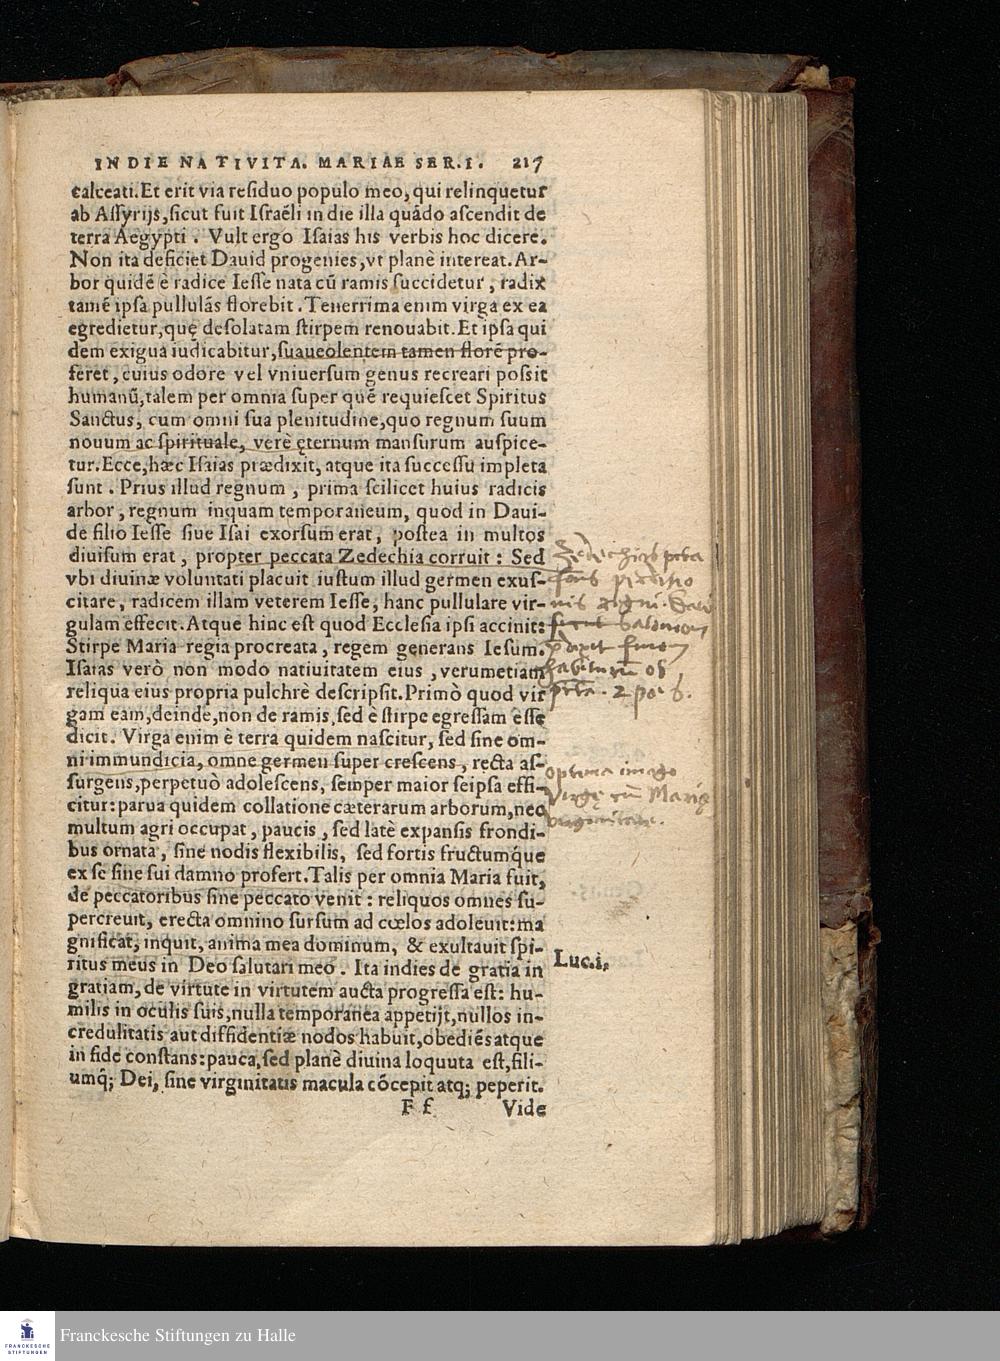 IN DIE NATIVITA. MARIAE SER. I. 217
calceati. Et erit via residuo populo meo, qui relinquetur
ab Assyrijs, sicut fuit Israëli in die illa quãdo ascendit de
terra Aegypti. Vult ergo Isaias his verbis hoc dicere.
Non ita deficiet Dauid progenies, vt planè intereat. Ar-
bor quidẽ è radice Iesse nata cũ ramis succidetur, radix
tamẽ ipsa pullulãs florebit. Tenerrima enim virga ex ea
egredietur, quę desolatam stirpem renouabit. Et ipsa qui
dem exigua iudicabitur, suaueolentem tamen florẽ pro-
feret, cuius odore vel vniuersum genus recreari possit
humanũ, talem per omnia super quẽ requiescet Spiritus
Sanctus, cum omni sua plenitudine, quo regnum suum
nouum ac spirituale, verè ęternum mansurum auspice-
tur. Ecce, hæc Isaias prædixit, atque ita successu impleta
sunt. Prius illud regnum, prima scilicet huius radicis
arbor, regnum inquam temporaneum, quod in Daui-
de filio Iesse siue Isai exorsum erat, postea in multos
diuisum erat, propter peccata Zedechia corruit: Sed
vbi diuinæ voluntati placuit iustum illud germen exus-
citare, radicem illam veterem Iesse, hanc pullulare vir-
gulam effecit. Atque hinc est quod Ecclesia ipsi accinit:
Stirpe Maria regia procreata, regem generans Iesum.
Isaias verò non modo natiuitatem eius, verumetiam
reliqua eius propria pulchrè descripsit. Primò quod vir
gam eam, deinde, non de ramis, sed è stirpe egressam esse
dicit. Virga enim è terra quidem nascitur, sed sine om-
ni immundicia, omne germen super crescens, recta as-
surgens, perpetuò adolescens, semper maior seipsa effi-
citur: parua quidem collatione cæterarum arborum, nec
multum agri occupat, paucis, sed latè expansis frondi-
bus ornata, sine nodis flexibilis, sed fortis fructumq́ue
ex se sine sui damno profert. Talis per omnia Maria fuit,
de peccatoribus sine peccato venit: reliquos omnes su-
percreuit, erecta omnino sursum ad cœlos adoleuit: ma
gnificat, inquit, anima mea dominum, & exultauit spi-
ritus meus in Deo salutari meo. Ita indies de gratia in
gratiam, de virtute in virtutem aucta progressa est: hu-
milis in oculis suis, nulla temporanea appetijt, nullos in-
credulitatis aut diffidentiæ nodos habuit, obediẽs atque
in fide constans: pauca, sed planè diuina loquuta est, fili-
umq́; Dei, sine virginitatis macula cõcepit atq; peperit.
F f Vide
Zedechias
optima imago
Virgę cũ Marię
virginitate.
Luc. i.
Franckesche Stiftungen zu Halle
FRANCKESCHE
STIFTUNGEN